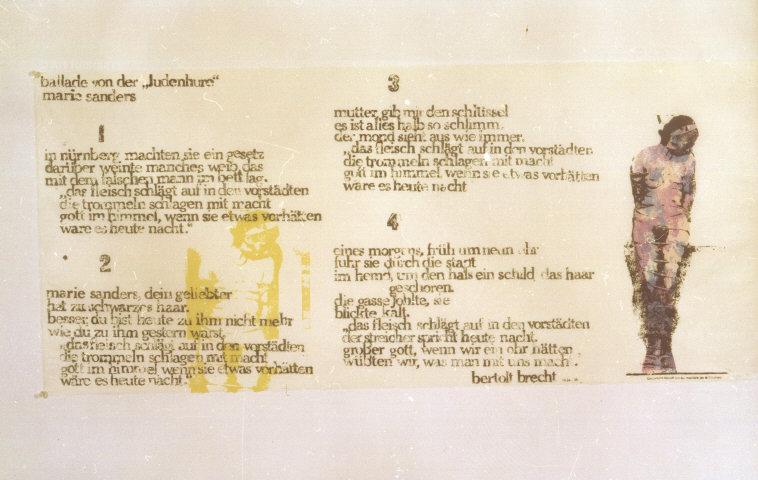 ballade von der „Judenhure“
marie sanders
1
in nürnberg machten sie ein gesetz
darüber weinte manches weib, das
mit dem falschen mann im bett lag.
„das fleisch schlägt auf in den vorstädten
die trommeln schlagen mit macht
gott im himmel, wenn sie etwas vorhätten
wäre es heute nacht.“
2
marie sanders, dein geliebter
hat zu schwarzes haar.
besser, du bist heute zu ihm nicht mehr
wie du zu ihm gestern warst.
„das fleisch schlägt auf in den vorstädten
die trommeln schlagen mit macht
gott im himmel wenn sie etwas vorhätten
wäre es heute nacht“
3
mutter, gib mir den schlüssel
es ist alles halb so schlimm.
der mond sieht aus wie immer.
„das fleisch schlägt auf in den vorstädten
die trommeln schlagen mit macht
gott im himmel, wenn sie etwas vorhätten
wäre es heute nacht
4
eines morgens, früh um neun uhr
fuhr sie durch die stadt
im hemd, um den hals ein schild, das haar
geschoren.
die gasse johlte, sie
blickte kalt.
„das fleisch schlägt auf in den vorstädten
der streicher spricht heute nacht.
großer gott, wenn wir ein ohr hätten
wüßten wir, was man mit uns macht“.
bertolt brecht